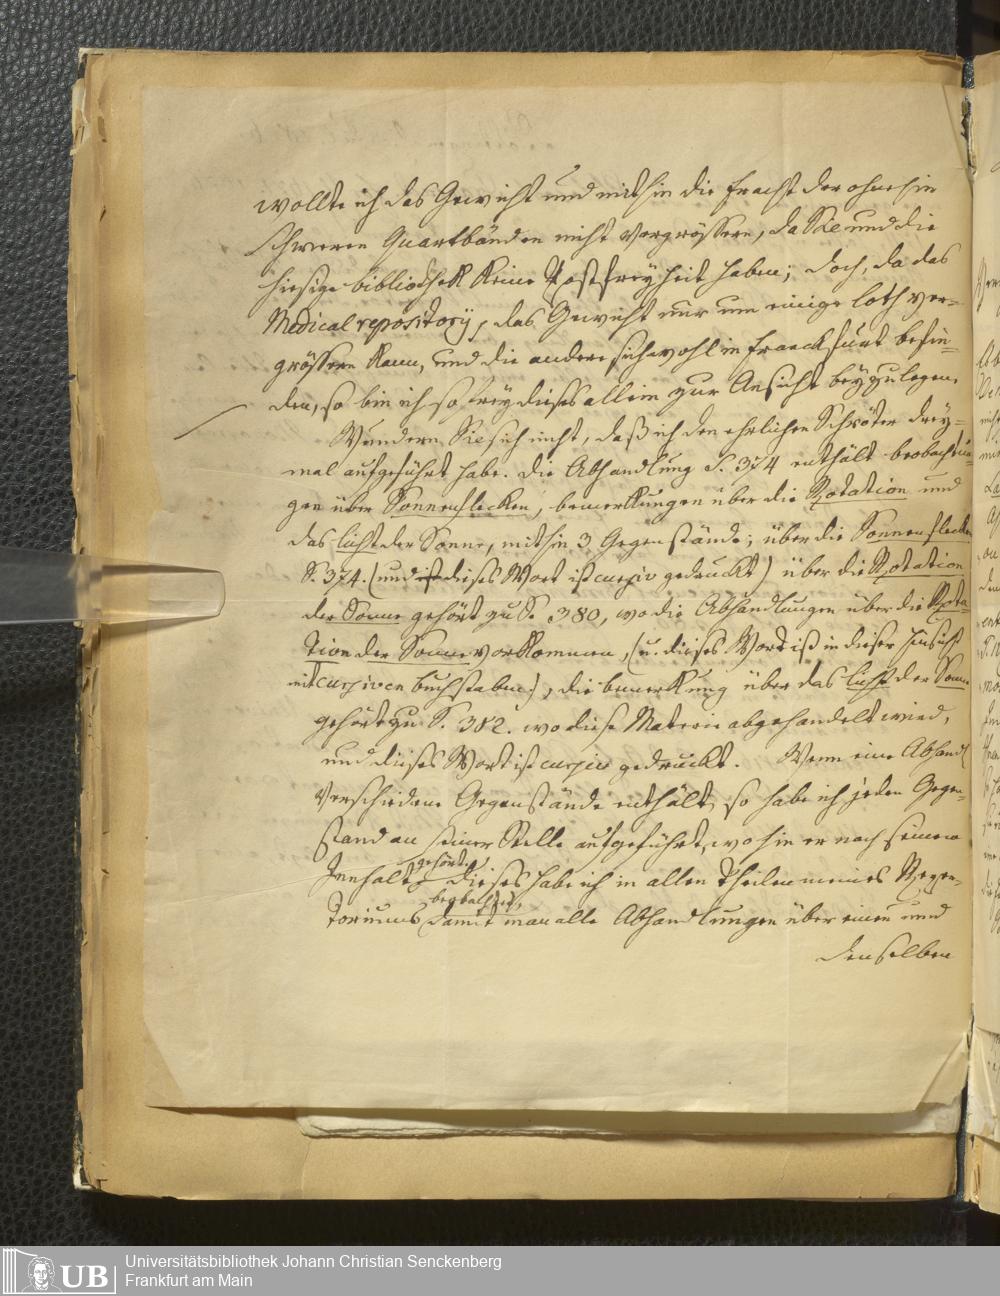 wollte ich das Gewicht und mithin die Fracht der ohnehin
schweren Quartbänden nicht vergrössern, da Sie und die
hiesige Bibliothek keine Postfreyheit haben; doch, da das
Medical repository, das Gewicht nur um einige Loth ver-
grössern kann, und die andere sich wohl in Franckfurt befin-
den, so bin ich so frey dieses allein zur Ansicht beyzulegen.
Wundern Sie sich nicht, daß ich den ehrlichen Schröter drey-
mal aufgeführt habe. Die Abhandlung S. 374 enthält Beobachtun-
gen über Sonnenflecken, Bemerkungen über die Rotation und
das Licht der Sonne, mithin 3 Gegenstände; über die Sonnenflecken
S. 374. (und dieses Wort ist cursiv gedruckt) über die Rotation
der Sonne gehört zu S. 380, wo die Abhandlungen über die Rota-
tion der Sonne vorkommen, (u. dieses Wort ist in dieser Hinsicht
mit cursiven Buchstaben), die Bemerkung über das Licht der Sonne
gehört zu S. 382. wo diese Materie abgehandelt wird,
und dieses Wort ist cursiv gedruckt. Wenn eine Abhandl
verschiedene Gegenstände enthält, so habe ich jeden Gegen-
stand an seiner Stelle aufgeführt, wohin er nach seinem
Innhalt gehört. Dieses habe ich in allen Theilen meines Reper-
toriums beobachtet, damit man alle Abhandlungen über einen und
denselben
UB
Universitätsbibliothek Johann Christian Senckenberg
Frankfurt am Main